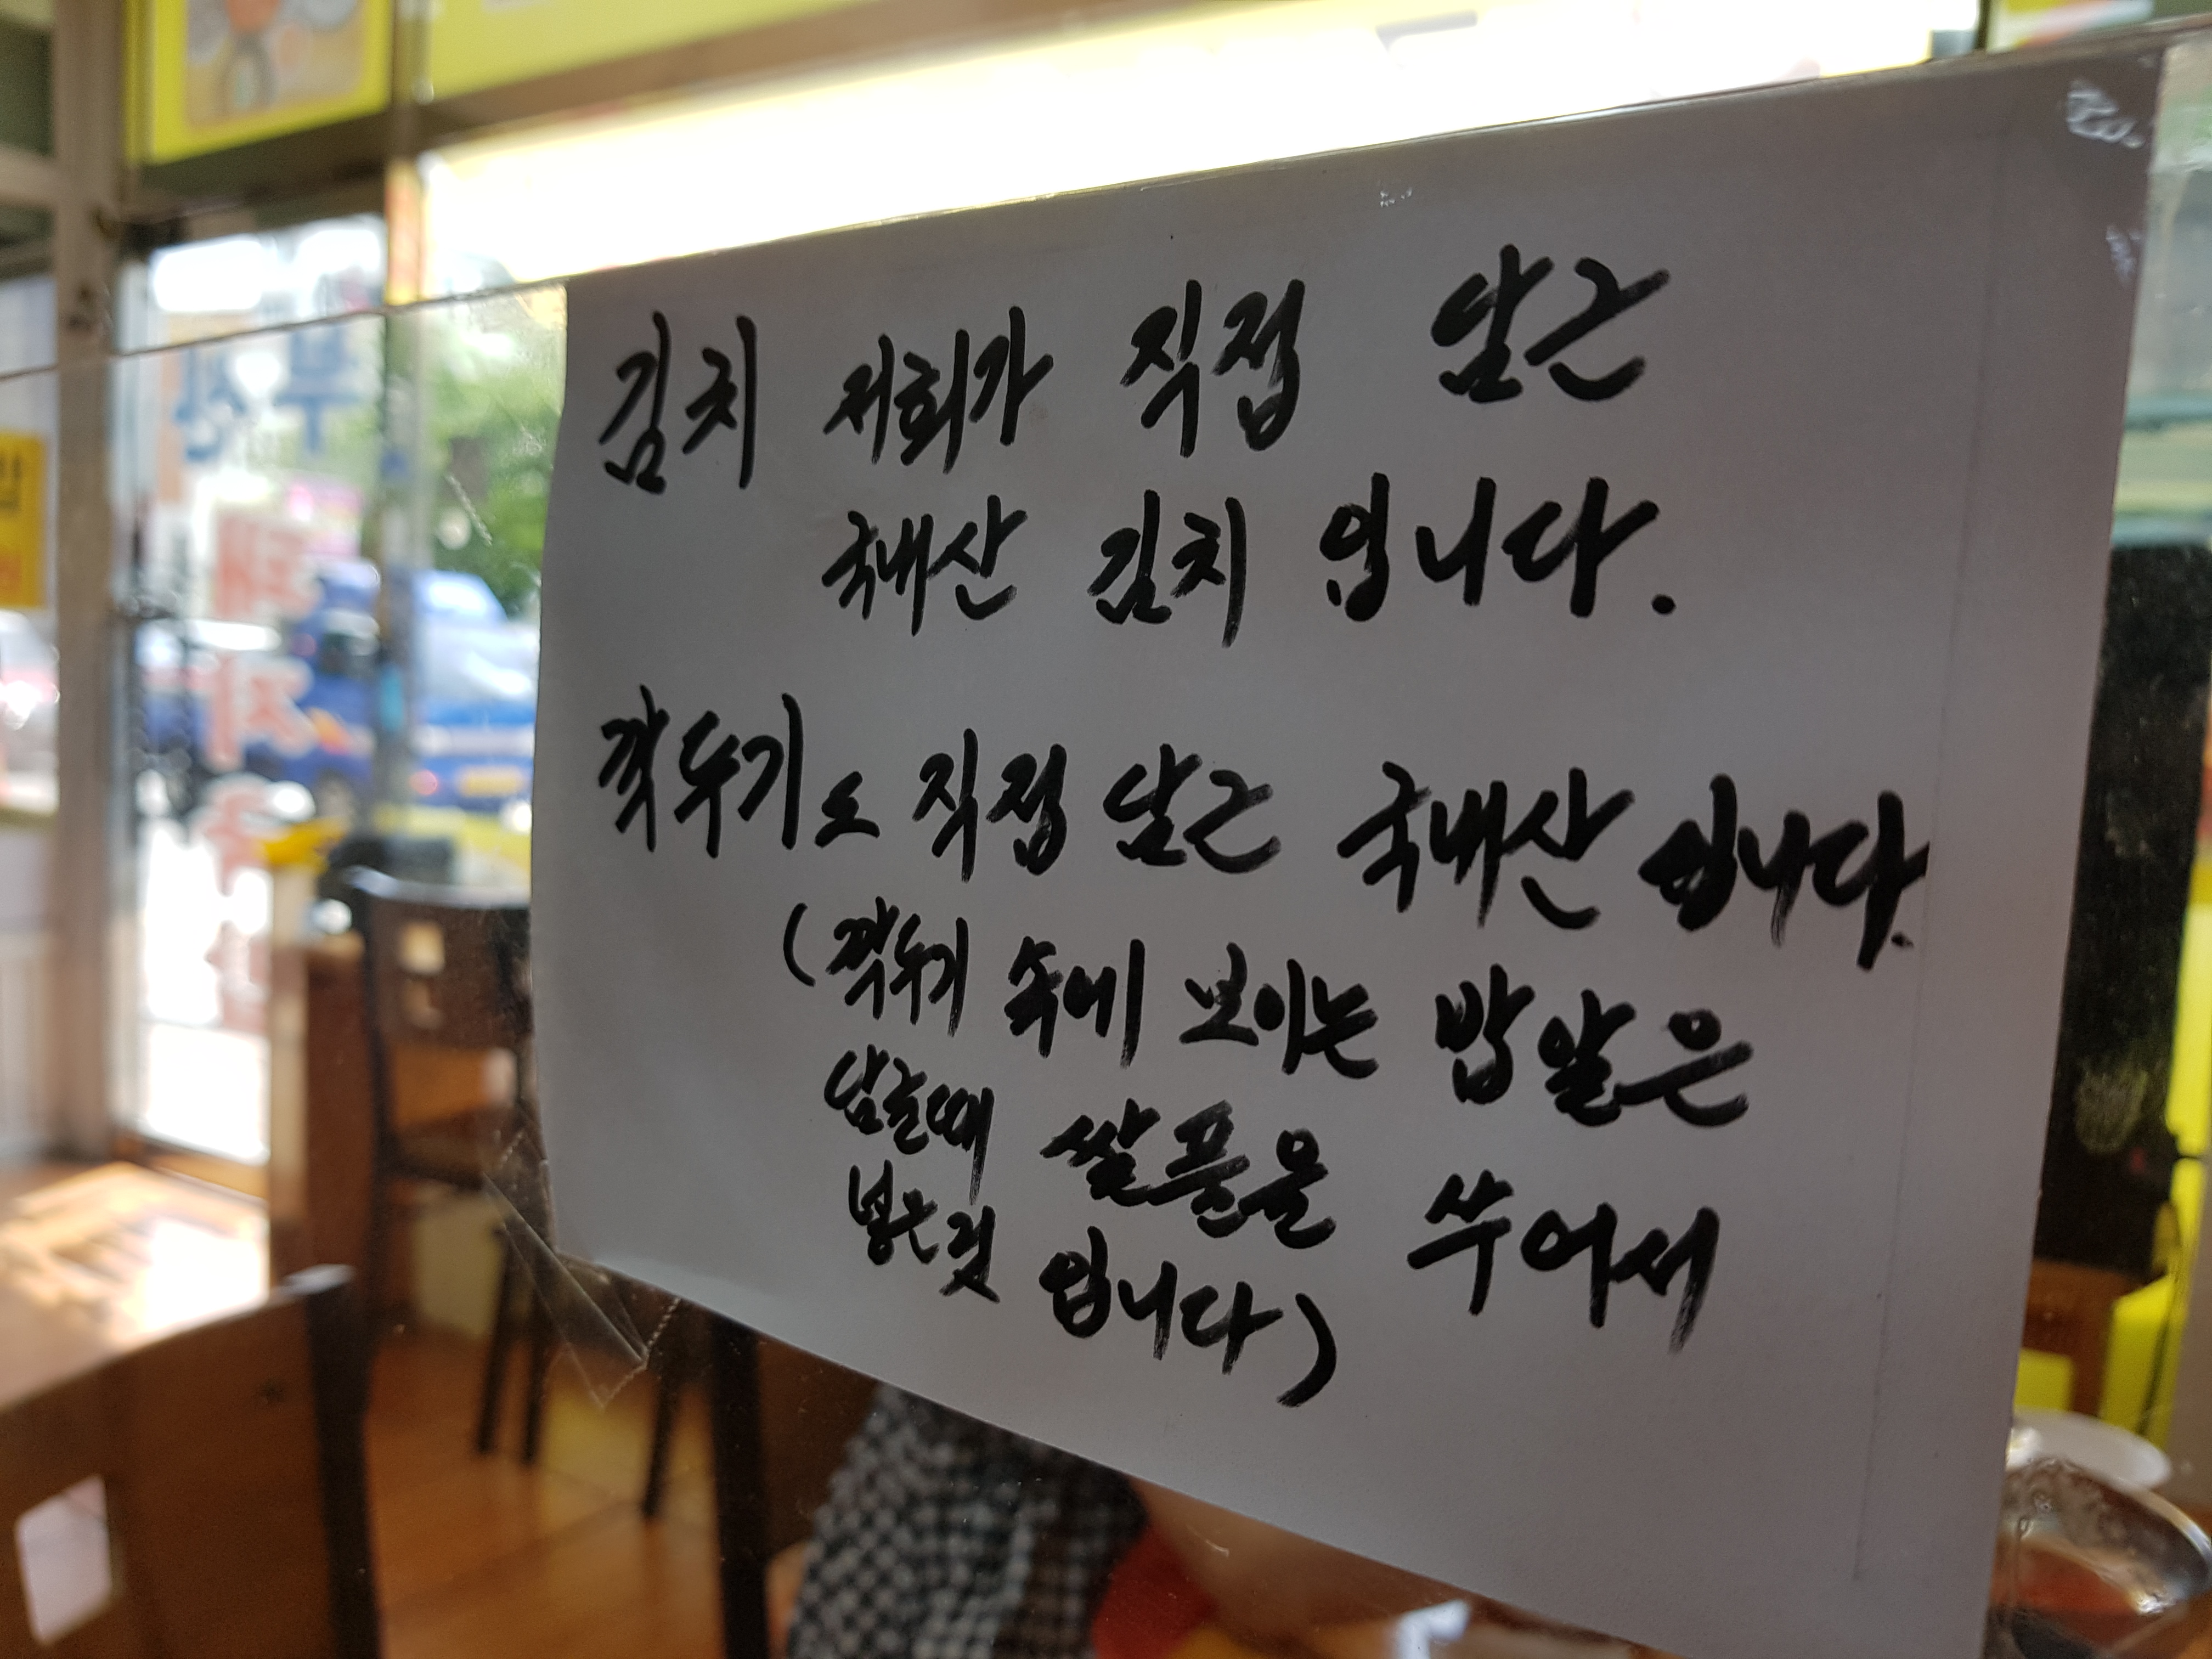 김치 저희가 직접 담근
국내산 김치 입니다.
깍두기도 직접 담근 국내산 입니다.
(깍두기 속에 보이는 밥알은
담글때 쌀풀을 쑤어서
넣은것 입니다)